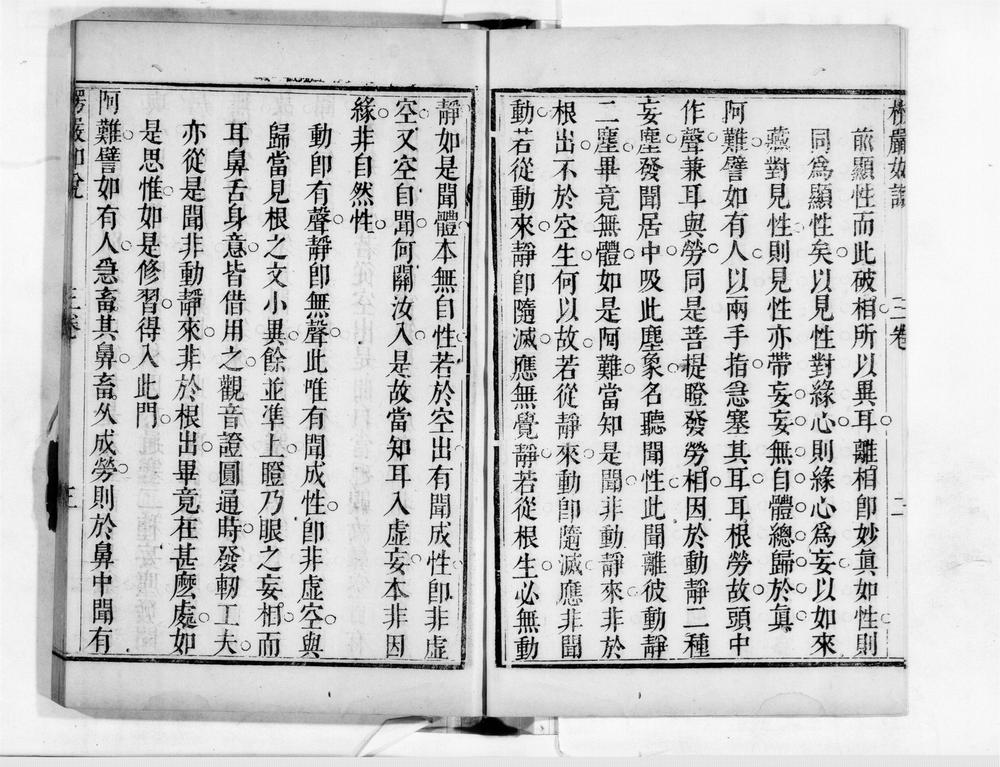 楞嚴如說 三卷 二
前顯性而此破相所以異耳離相卽妙眞如性則
同爲顯性矣以見性對緣心則緣心爲妄以如來
藏對見性則見性亦帶妄妄無自體總歸於眞
阿難譬如有人以兩手指急塞其耳耳根勞故頭中
作聲兼耳與勞同是菩提瞪發勞相因於動靜二種
妄塵發聞居中吸此塵象名聽聞性此聞離彼動靜
二塵畢竟無體如是阿難當知是聞非動靜來非於
根出不於空生何以故若從靜來動卽隨滅應非聞
動若從動來靜卽隨滅應無覺靜若從根生必無動
靜如是聞體本無自性若於空出有聞成性卽非虛
空又空自聞何關汝入是故當知耳入虛妄本非因
緣非自然性
動卽有聲靜卽無聲此唯有聞成性卽非虛空與
歸當見根之文小異餘並準上瞪乃眼之妄相而
耳鼻舌身意皆借用之觀音證圓通時發軔工夫
亦從是聞非動靜來非於根出畢竟在甚麼處如
是思惟如是修習得入此門
阿難譬如有人急畜其鼻畜久成勞則於鼻中聞有
楞嚴如說 三卷 三